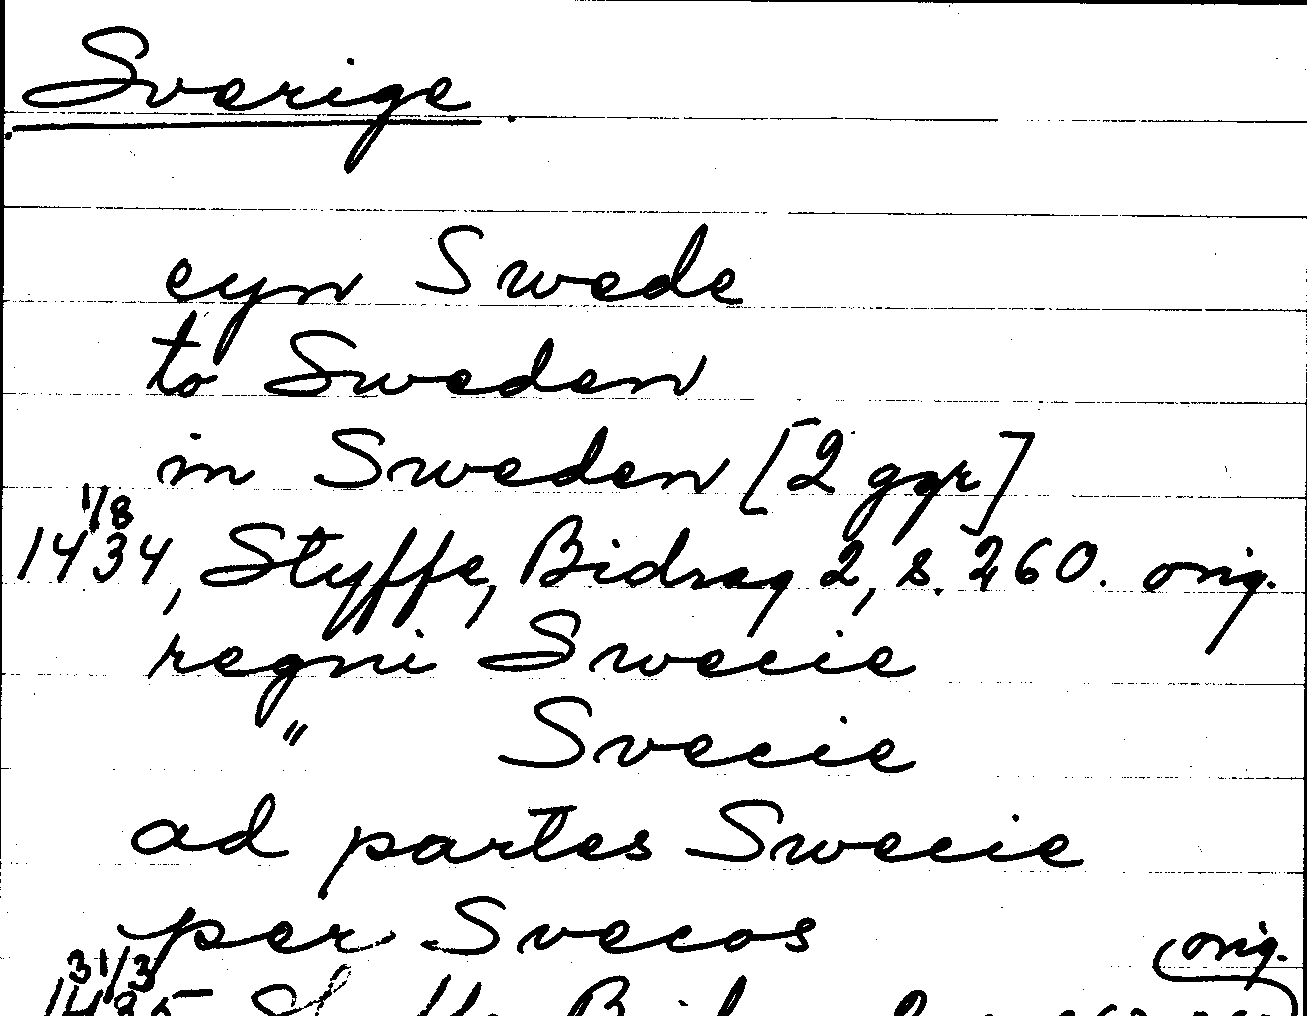 Sverige.
eyn Swede
to Sweden
in Sweden [2 ggr]
1/8
1434, Styffe, Bidrag 2, s. 260. orig.
regni Swecie
" Svecie
ad partes Swecie
per Svecos
orig.
31/3
1435